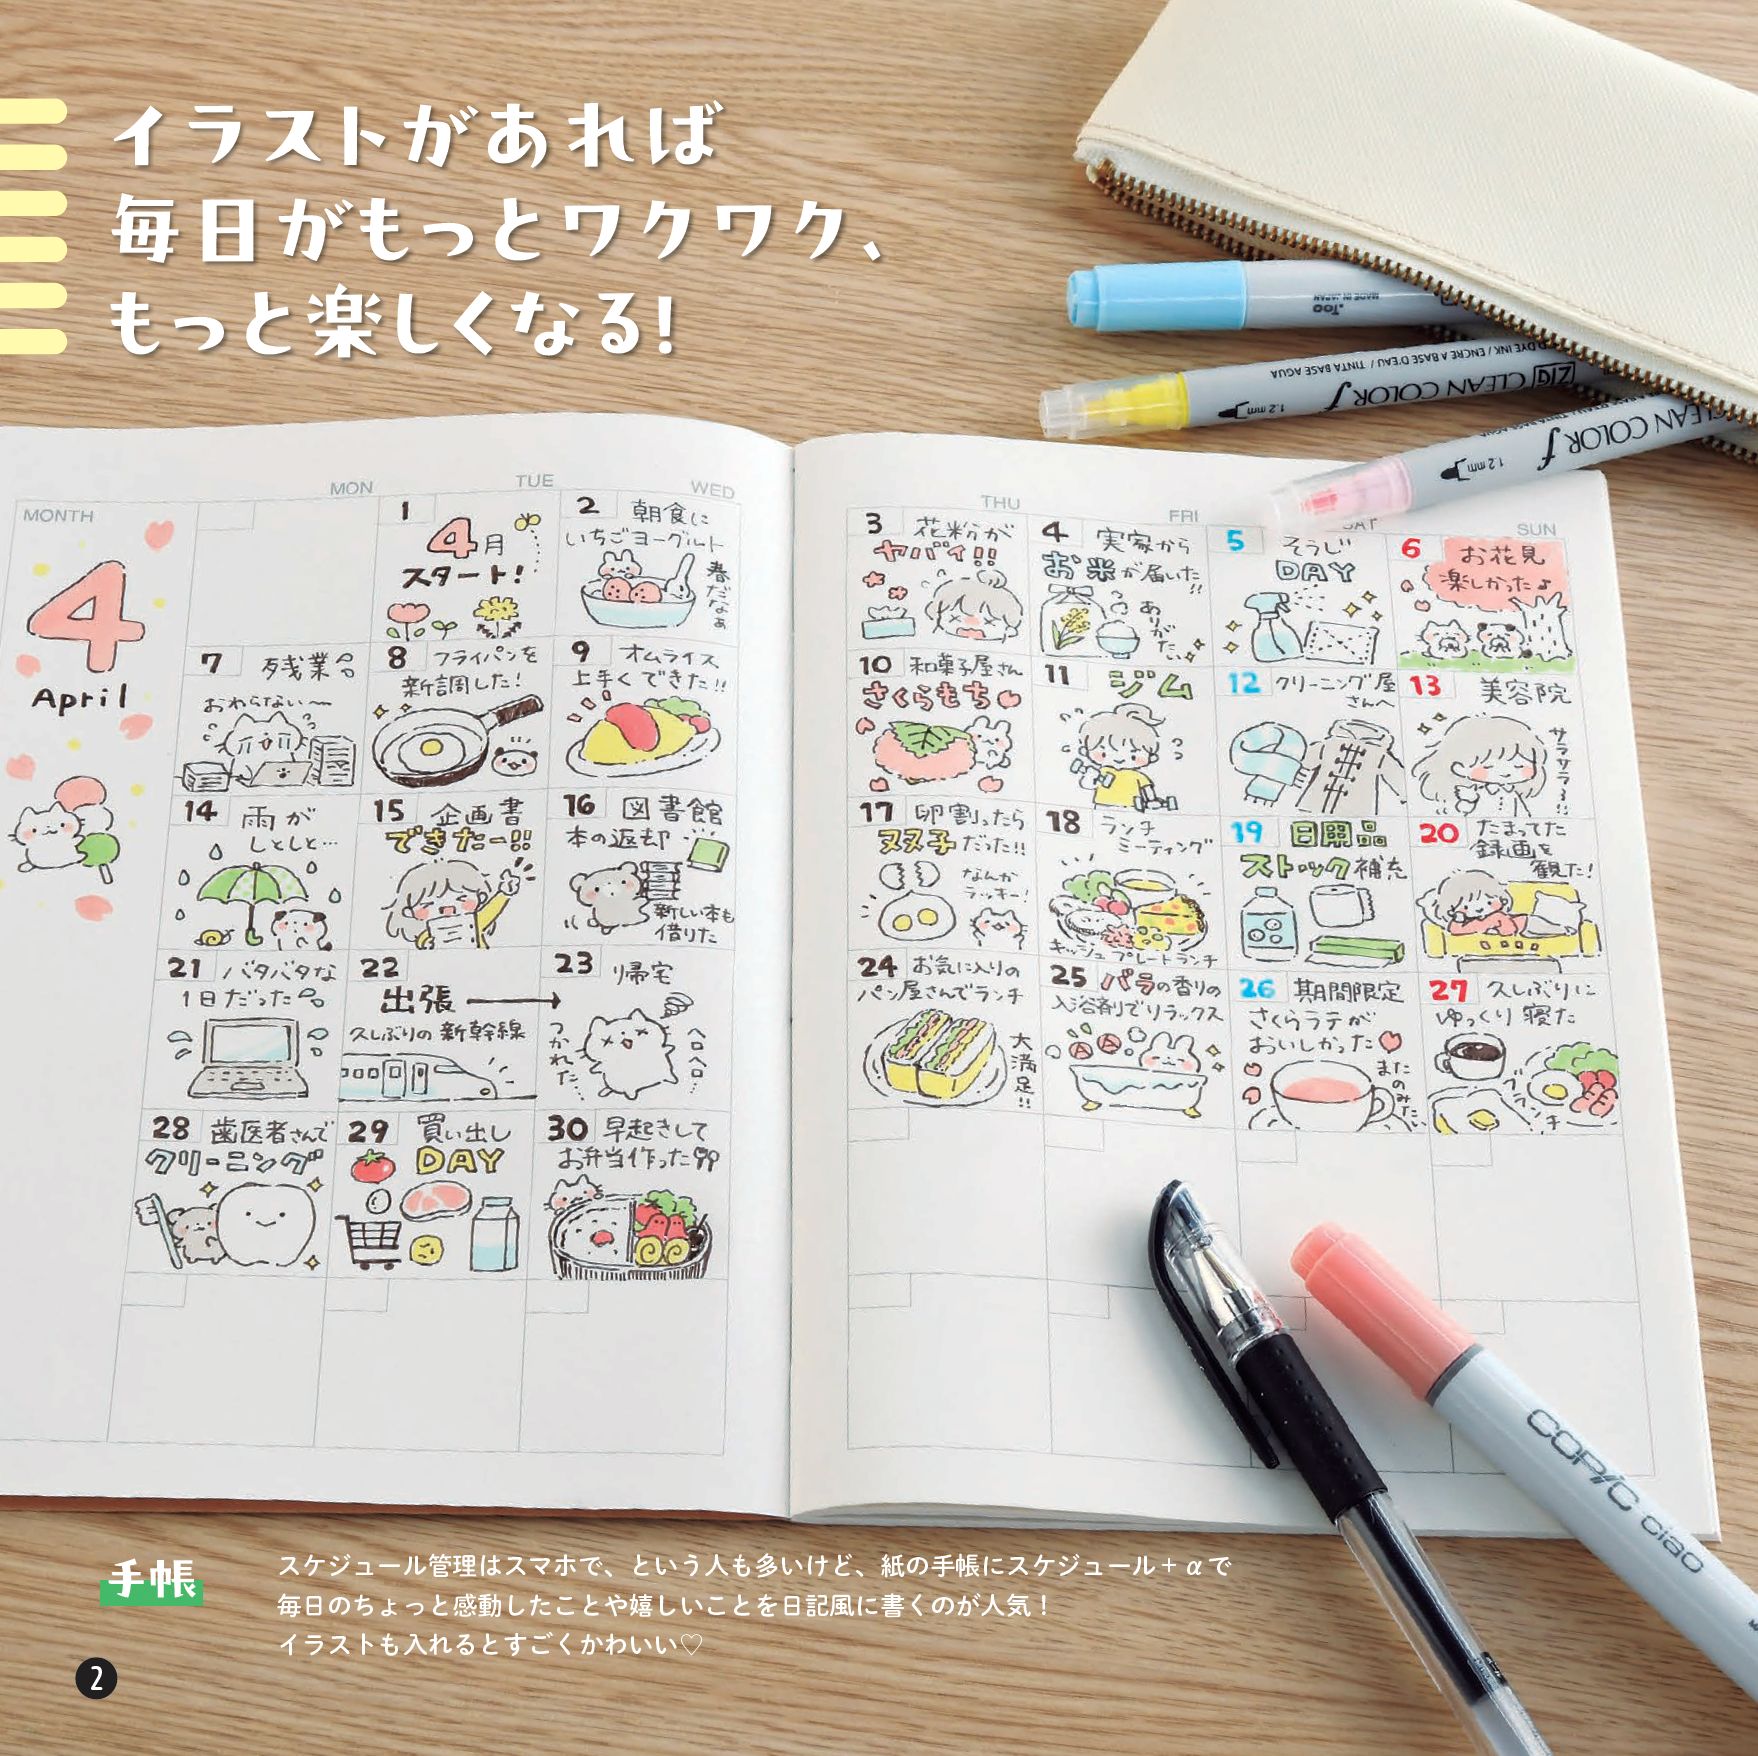 イラストがあれば
毎日がもっとワクワク、
もっと楽しくなる!
.Too
MADE IN JAPAN
ZIG CLEAN COLOR f
1.2mm
DYE INK / ENCRE A BASE D'EAU / TINTA BASE AGUA
CLEAN COLOR f
1.2mm
MONTH
MON
TUE
WED
THU
FRI
SAT
SUN
4
April
1
4月
スタート!
2 朝食に
いちごヨーグルト
春だなぁ
3 花粉が
ヤバイ!!
4 実家から
お米が届いた!!
ありがたい
5 そうじ
DAY
6 お花見
楽しかった♪
7 残業
おわらない〜
8 フライパンを
新調した!
9 オムライス
上手くできた!!
10 和菓子屋さん
さくらもち
11 ジム
12 クリーニング屋
さんへ
13 美容院
サラサラ!!
14 雨が
しとしと…
15 企画書
できたー!!
16 図書館
本の返却
新しい本も
借りた
17 卵割ったら
双子だった!!
なんか
ラッキー!
18 ランチ
ミーティング
キッシュ プレートランチ
19 日用品
ストック補充
20 たまってた
録画を
観た!
21 バタバタな
1日だった
22
出張
久しぶりの新幹線
23 帰宅
つかれた…
ヘロヘロ…
24 お気に入りの
パン屋さんでランチ
大満足!!
25 バラの香りの
入浴剤でリラックス
26 期間限定
さくらラテが
おいしかった
またのみたい
27 久しぶりに
ゆっくり寝た
ブランチ
28 歯医者さんで
クリーニング
29 買い出し
DAY
30 早起きして
お弁当作った
COPIC ciao
手帳
スケジュール管理はスマホで、という人も多いけど、紙の手帳にスケジュール+αで
毎日のちょっと感動したことや嬉しいことを日記風に書くのが人気!
イラストも入れるとすごくかわいい♡
2